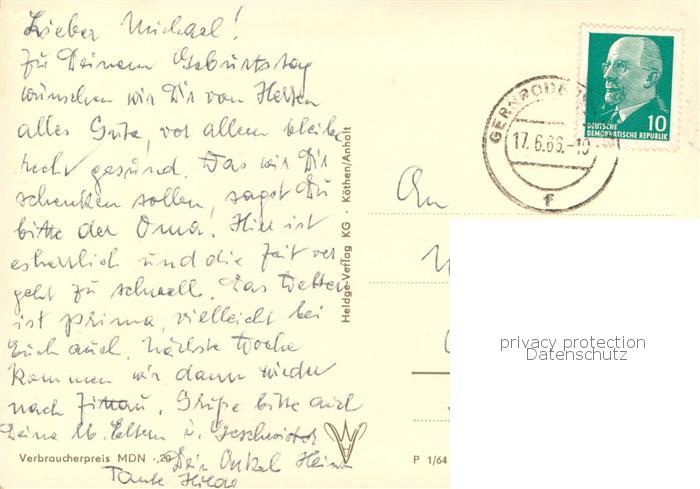 Lieber Michael!
Zu Deinem Geburtstag
wünschen wir Dir von Herzen
alles Gute, vor allem bleibe
recht gesund. Was wir Dir
schenken sollen, sagst Du
bitte der Oma. Hier ist
es herrlich und die Zeit ver
geht zu schnell. Das Wetter
ist prima, vielleicht bei
Euch auch. Nächste Woche
kommen wir dann wieder
nach Zittau. Grüße bitte auch
Deine lb. Eltern u. Geschwister
Dein Onkel Heinz
Tante Hilde
Verbraucherpreis MDN -,20
Heldge-Verlag KG · Köthen/Anhalt
P 1/64
GERNRODE
17.6.66.-10
f
10
DEUTSCHE
DEMOKRATISCHE REPUBLIK
An
privacy protection
Datenschutz